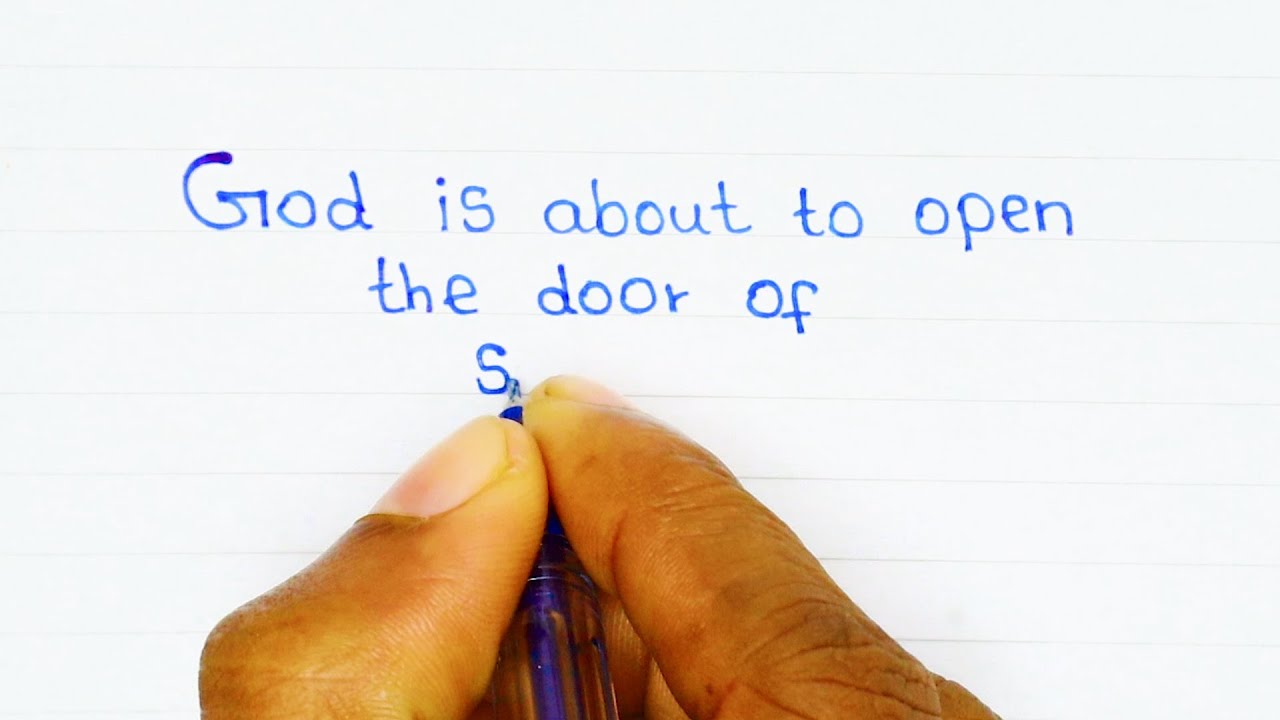 God is about to open
the door of
s